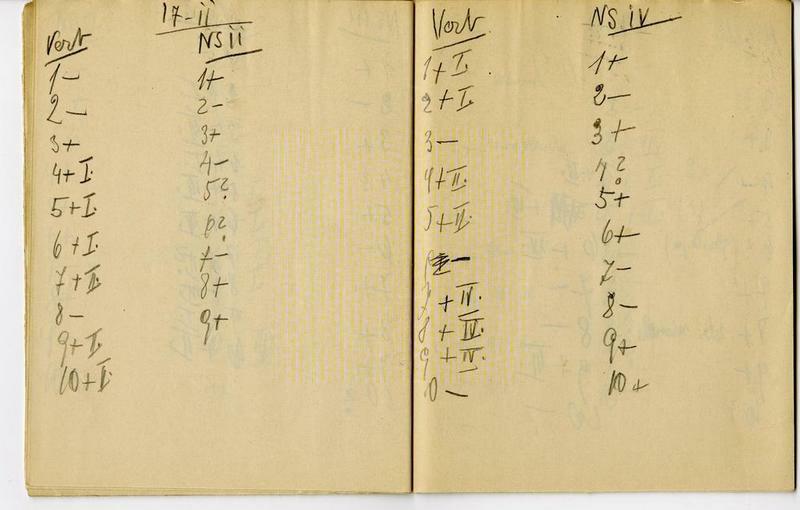 17-ii
Vert NS ii
1 - 1+
2 - 2 -
3+ 3+
4+ I. 4 -
5+ I. 5?
6+ I. 6?
7+ II. 7 -
8 - 8+
9+ I. 9+
10+ I.
Vert NS iv
1+ I. 1+
2+ I. 2 -
3 - 3+
4+ II. 4?
5+ II. 5+
- 6+
+ IV. 7 -
8 + IV. 8 -
9 + IV. 9+
10 - 10+